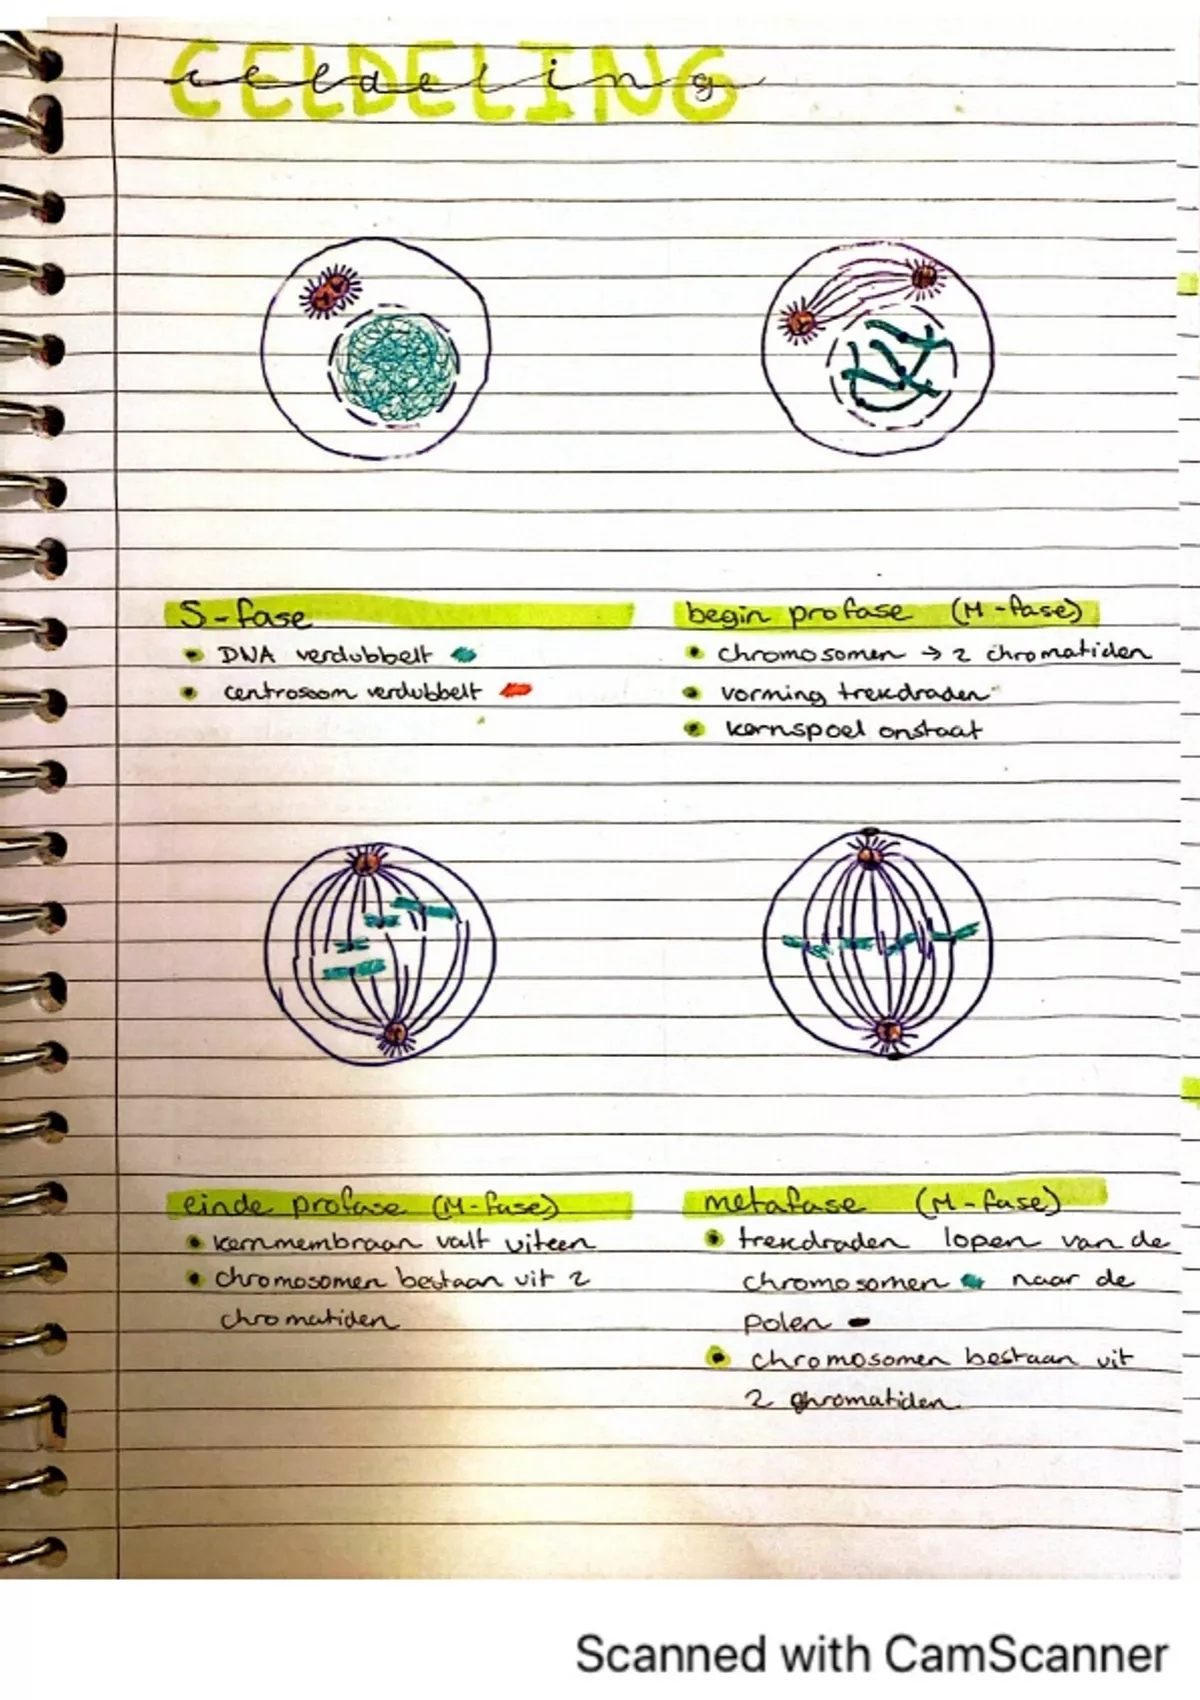 CELDELING
celdeling
S-fase
DNA verdubbelt
centrosoom verdubbelt
begin profase (M-fase)
chromosomen → 2 chromatiden
vorming trekdraden
kernspoel onstaat
einde profase (M-fase)
kernmembraan valt uiteen
chromosomen bestaan uit 2
chromatiden
metafase (M-fase)
trekdraden lopen van de
chromosomen naar de
polen
chromosomen bestaan uit
2 chromatiden
Scanned with CamScanner